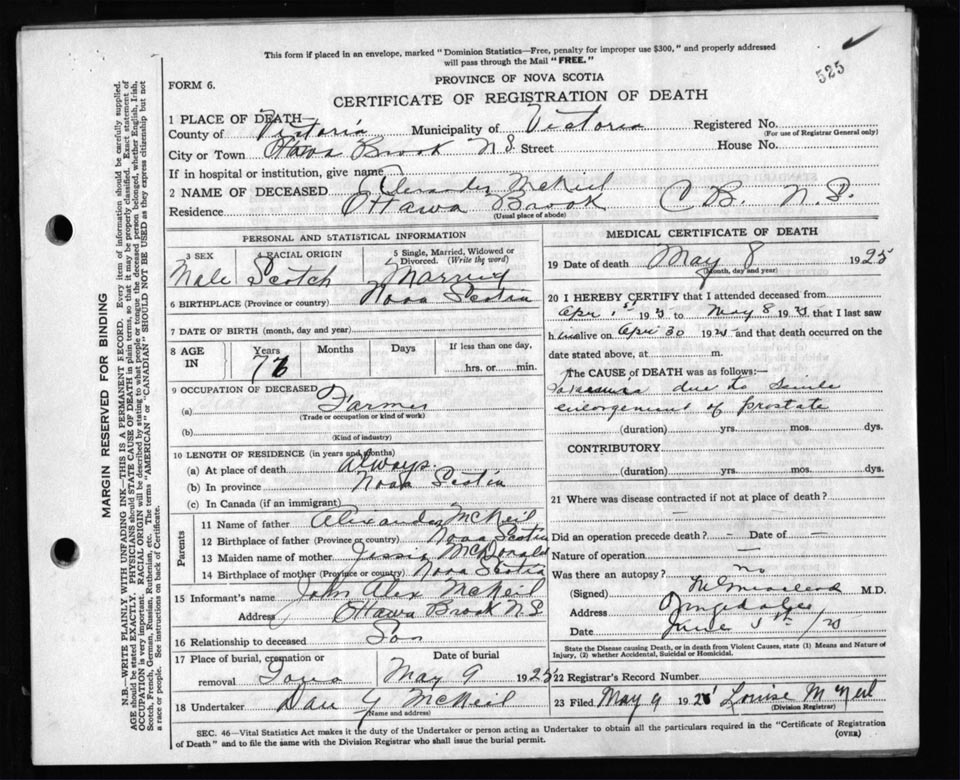 This form if placed in an envelope, marked "Dominion Statistics—Free, penalty for improper use $300," and properly addressed
will pass through the Mail "FREE."
525
PROVINCE OF NOVA SCOTIA
FORM 6.
CERTIFICATE OF REGISTRATION OF DEATH
1 PLACE OF DEATH—
County of Victoria Municipality of Victoria Registered No.
(For use of Registrar General only)
City or Town Ottawa Brook N S Street House No.
If in hospital or institution, give name
2 NAME OF DECEASED Alexander McNeil
Residence Ottawa Brook C B. N. S.
(Usual place of abode)
PERSONAL AND STATISTICAL INFORMATION
3 SEX 4 RACIAL ORIGIN 5 Single, Married, Widowed or
Divorced. (Write the word)
Male Scotch Married
6 BIRTHPLACE (Province or country) Nova Scotia
7 DATE OF BIRTH (month, day and year)
8 AGE IN Years Months Days If less than one day,
hrs. or min.
9 OCCUPATION OF DECEASED
(a) Farmer
(Trade or occupation or kind of work)
(b)
(Kind of industry)
10 LENGTH OF RESIDENCE (in years and months)
(a) At place of death always.
(b) In province Nova Scotia
(c) In Canada (if an immigrant)
Parents
11 Name of father Alexander McNeil
12 Birthplace of father (Province or country) Nova Scotia
13 Maiden name of mother Jessie McDonald
14 Birthplace of mother (Province or country) Nova Scotia
15 Informant's name John Alex McNeil
Address Ottawa Brook N S
16 Relationship to deceased Son
17 Place of burial, cremation or Date of burial
removal Iona May 9 1925
18 Undertaker Dan Y McNeil
(Name and address)
MEDICAL CERTIFICATE OF DEATH
19 Date of death May 8 1925
(Month, day and year)
20 I HEREBY CERTIFY that I attended deceased from
Apr 1st 1925 to May 8 1925 that I last saw
him alive on Apr 30 1925 and that death occurred on the
date stated above, at m.
The CAUSE of DEATH was as follows:—
due to Senile
enlorgement of prostate
(duration) yrs. mos. dys.
CONTRIBUTORY
(duration) yrs. mos. dys.
21 Where was disease contracted if not at place of death? —
Did an operation precede death? — Date of —
Nature of operation —
Was there an autopsy? no
(Signed) M.D.
Address
Date June 5th/25
State the Disease causing Death, or in death from Violent Causes, state (1) Means and Nature of
Injury, (2) whether Accidental, Suicidal or Homicidal.
22 Registrar's Record Number
23 Filed May 9 1925 Louise McNeil
(Division Registrar)
SEC. 46—Vital Statistics Act makes it the duty of the Undertaker or person acting as Undertaker to obtain all the particulars required in the "Certificate of Registration
of Death" and to file the same with the Division Registrar who shall issue the burial permit.
(OVER)
MARGIN RESERVED FOR BINDING
N.B.—WRITE PLAINLY WITH UNFADING INK—THIS IS A PERMANENT RECORD. Every item of information should be carefully supplied.
AGE should be stated EXACTLY. PHYSICIANS should STATE CAUSE OF DEATH in plain terms, so that it may be properly classified. Exact statement of
OCCUPATION is very important. RACIAL ORIGIN will be described by stating to what people or tongue the deceased person belonged, whether English, Irish,
Scotch, French, German, Russian, Ruthenian, etc. The terms "AMERICAN" or "CANADIAN" SHOULD NOT BE USED as they express citizenship but not
a race or people. See instructions on back of Certificate.